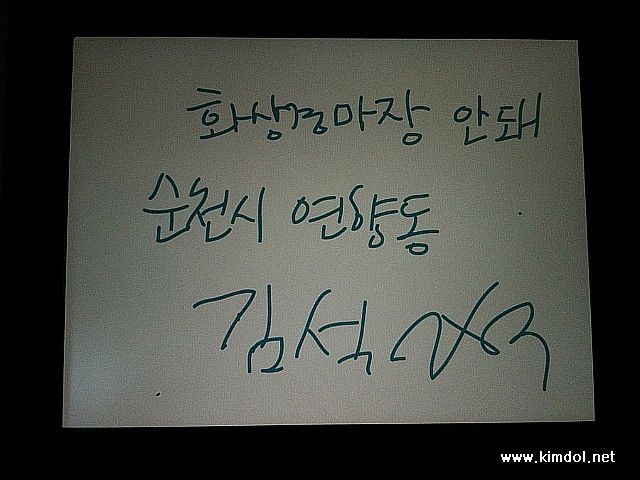 화상경마장 안돼
순천시 연향동
김석
www.kimdol.net